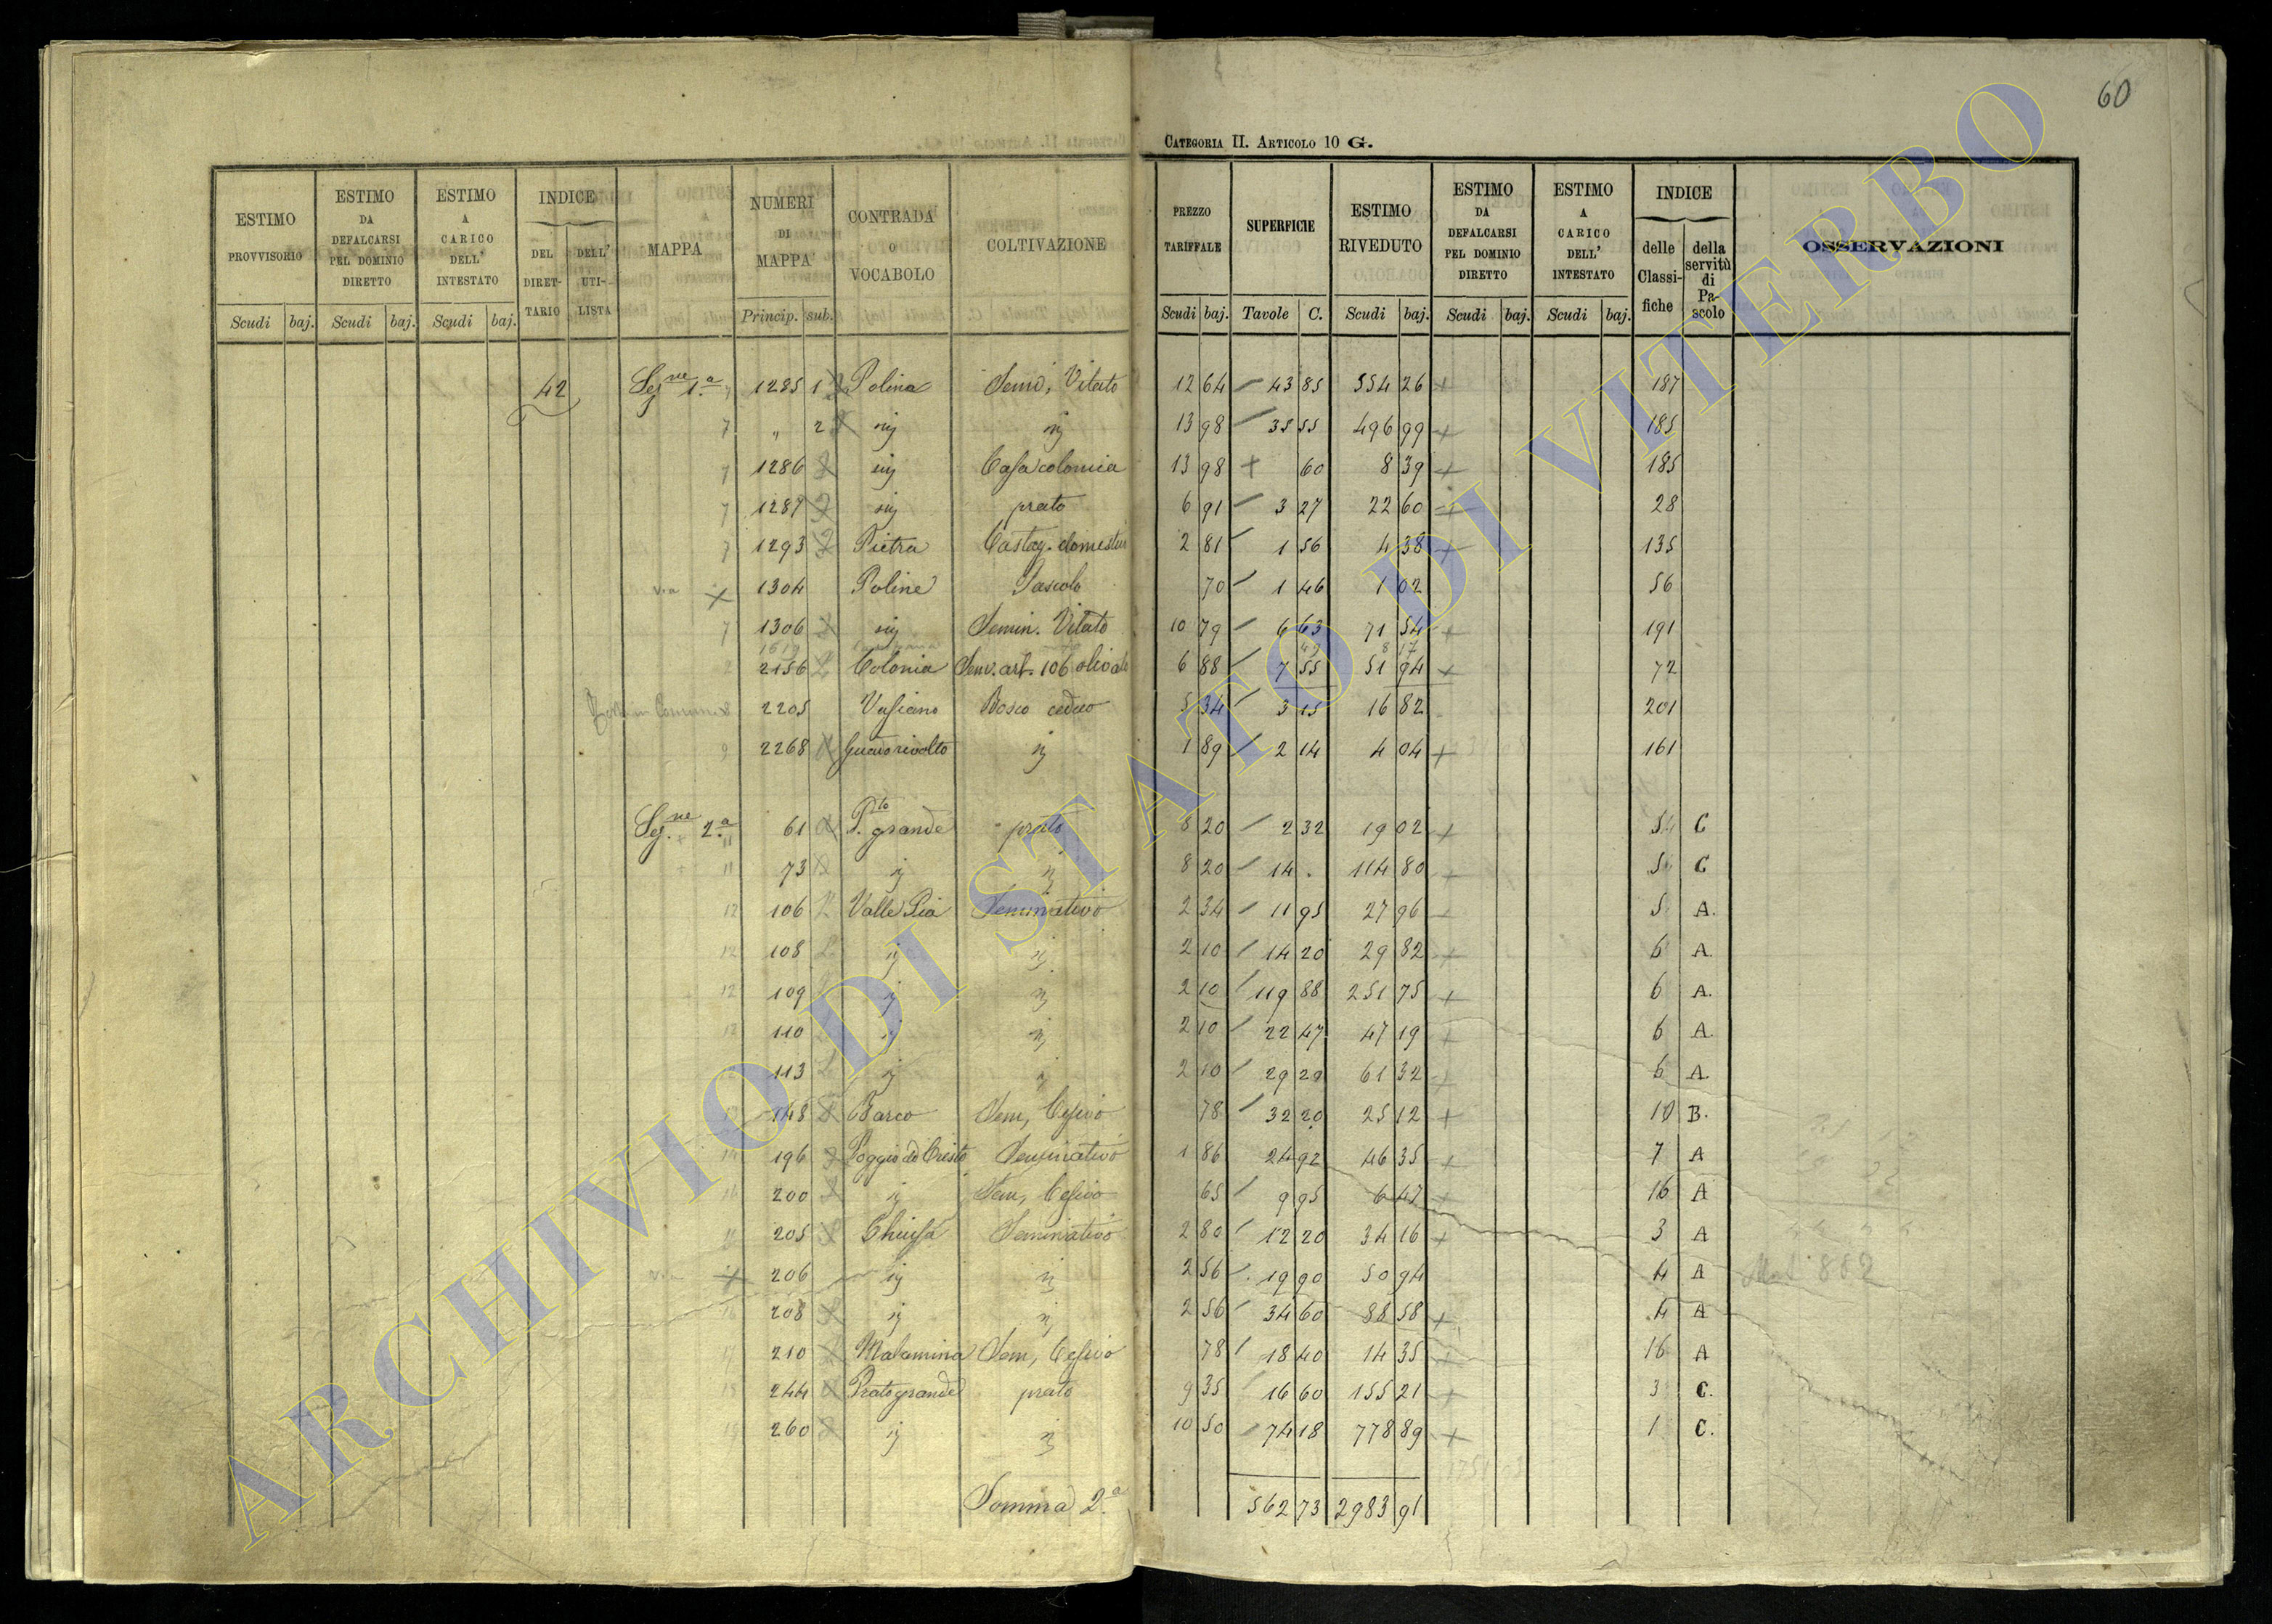 60
CATEGORIA II. ARTICOLO 10 G.
ESTIMO PROVVISORIO Scudi baj.
ESTIMO DA DEFALCARSI PEL DOMINIO DIRETTO Scudi baj.
ESTIMO A CARICO DELL' INTESTATO Scudi baj.
INDICE DEL DIRET-TARIO DELL' UTI-LISTA
MAPPA
NUMERI DI MAPPA Princip. sub.
CONTRADA O VOCABOLO
COLTIVAZIONE
PREZZO TARIFFALE Scudi baj.
SUPERFICIE Tavole C.
ESTIMO RIVEDUTO Scudi baj.
ESTIMO DA DEFALCARSI PEL DOMINIO DIRETTO Scudi baj.
ESTIMO A CARICO DELL' INTESTATO Scudi baj.
INDICE delle Classi-fiche della servitù di Pa-scolo
OSSERVAZIONI
42 Sez.ne 1.a 1285 1 Polina Semi, Vitato 12 64 43 85 554 26 + 187
7 " 2 13 98 35 55 496 99 + 185
7 1286 Casa colonica 13 98 + 60 8 39 + 185
7 1287 prato 6 91 3 27 22 60 + 28
7 1293 Pietra Castag. domestico 2 81 1 56 4 38 + 135
via + 1304 Poline Pascolo 70 1 46 1 02 56
7 1306 Semin. Vitato 10 79 6 63 71 54 + 191
2156 Colonia Sem. art. 106 olivato 6 88 7 55 51 94 + 72
2205 Vasiano Bosco ceduo 5 34 3 15 16 82 201
9 2268 Guado rivolto 1 89 2 14 4 04 + 161
Sez.ne 2.a 11 61 P.to grande prato 8 20 2 32 19 02 + 54 C
11 73 8 20 14 . 114 80 + 5 C
12 106 Valle Pia Seminativo 2 34 11 95 27 96 5 A.
12 108 2 10 14 20 29 82 + 6 A.
12 109 2 10 119 88 251 75 + 6 A.
12 110 2 10 22 47 47 19 + 6 A.
113 2 10 29 20 61 32 + 6 A.
148 Barco Sem, Cesivo 78 32 20 25 12 + 10 B.
196 Poggio del Creste Seminativo 1 86 24 92 46 35 + 7 A
16 200 Sem, Cesivo 65 9 95 6 47 + 16 A
205 Chiusa Seminativo 2 80 12 20 34 16 + 3 A
via + 206 2 56 19 90 50 94 4 A
16 208 2 56 34 60 88 58 + 4 A
210 Malamina Sem, Cesivo 78 18 40 14 35 + 16 A
244 Prato grande prato 9 35 16 60 155 21 + 3 C.
260 10 50 74 18 778 89 + 1 C.
Somma 2.a 562 73 2983 91
ARCHIVIO DI STATO DI VITERBO